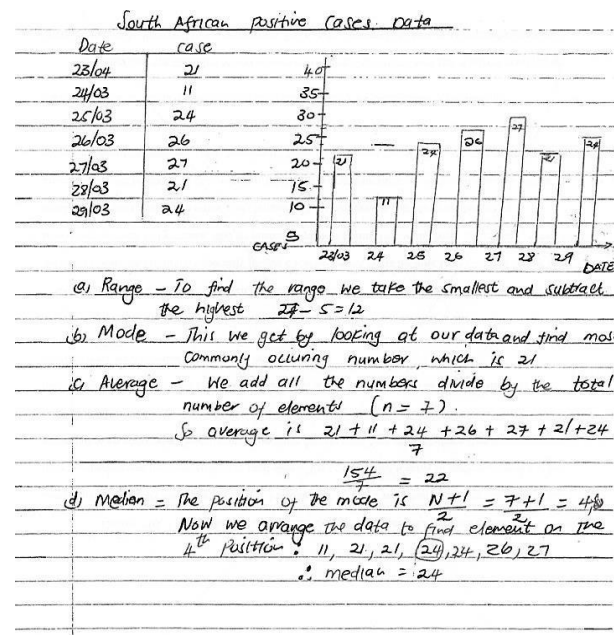 South African positive Cases Data
Date case
23/04 21
24/03 11
25/03 24
26/03 26
27/03 27
28/03 21
29/03 24
40
35
30
25
20
15
10
5
21 11 24 26 27 21 24
CASES 23/03 24 25 26 27 28 29
DATE
(a) Range - To find the range we take the smallest and subtract
the highest 27 - 5 = 12
(b) Mode - This we get by looking at our data and find mos
Commonly occuring number, which is 21
(c) Average - We add all the numbers divide by the total
number of elements (n = 7).
So average is 21 + 11 + 24 + 26 + 27 + 21 + 24
7
154 = 22
7
(d) Median = The position of the mode is N+1 = 7+1 = 4,0
2 2
Now we arrange the data to find element on the
4th Position : 11, 21, 21, 24, 24, 26, 27
∴ median = 24